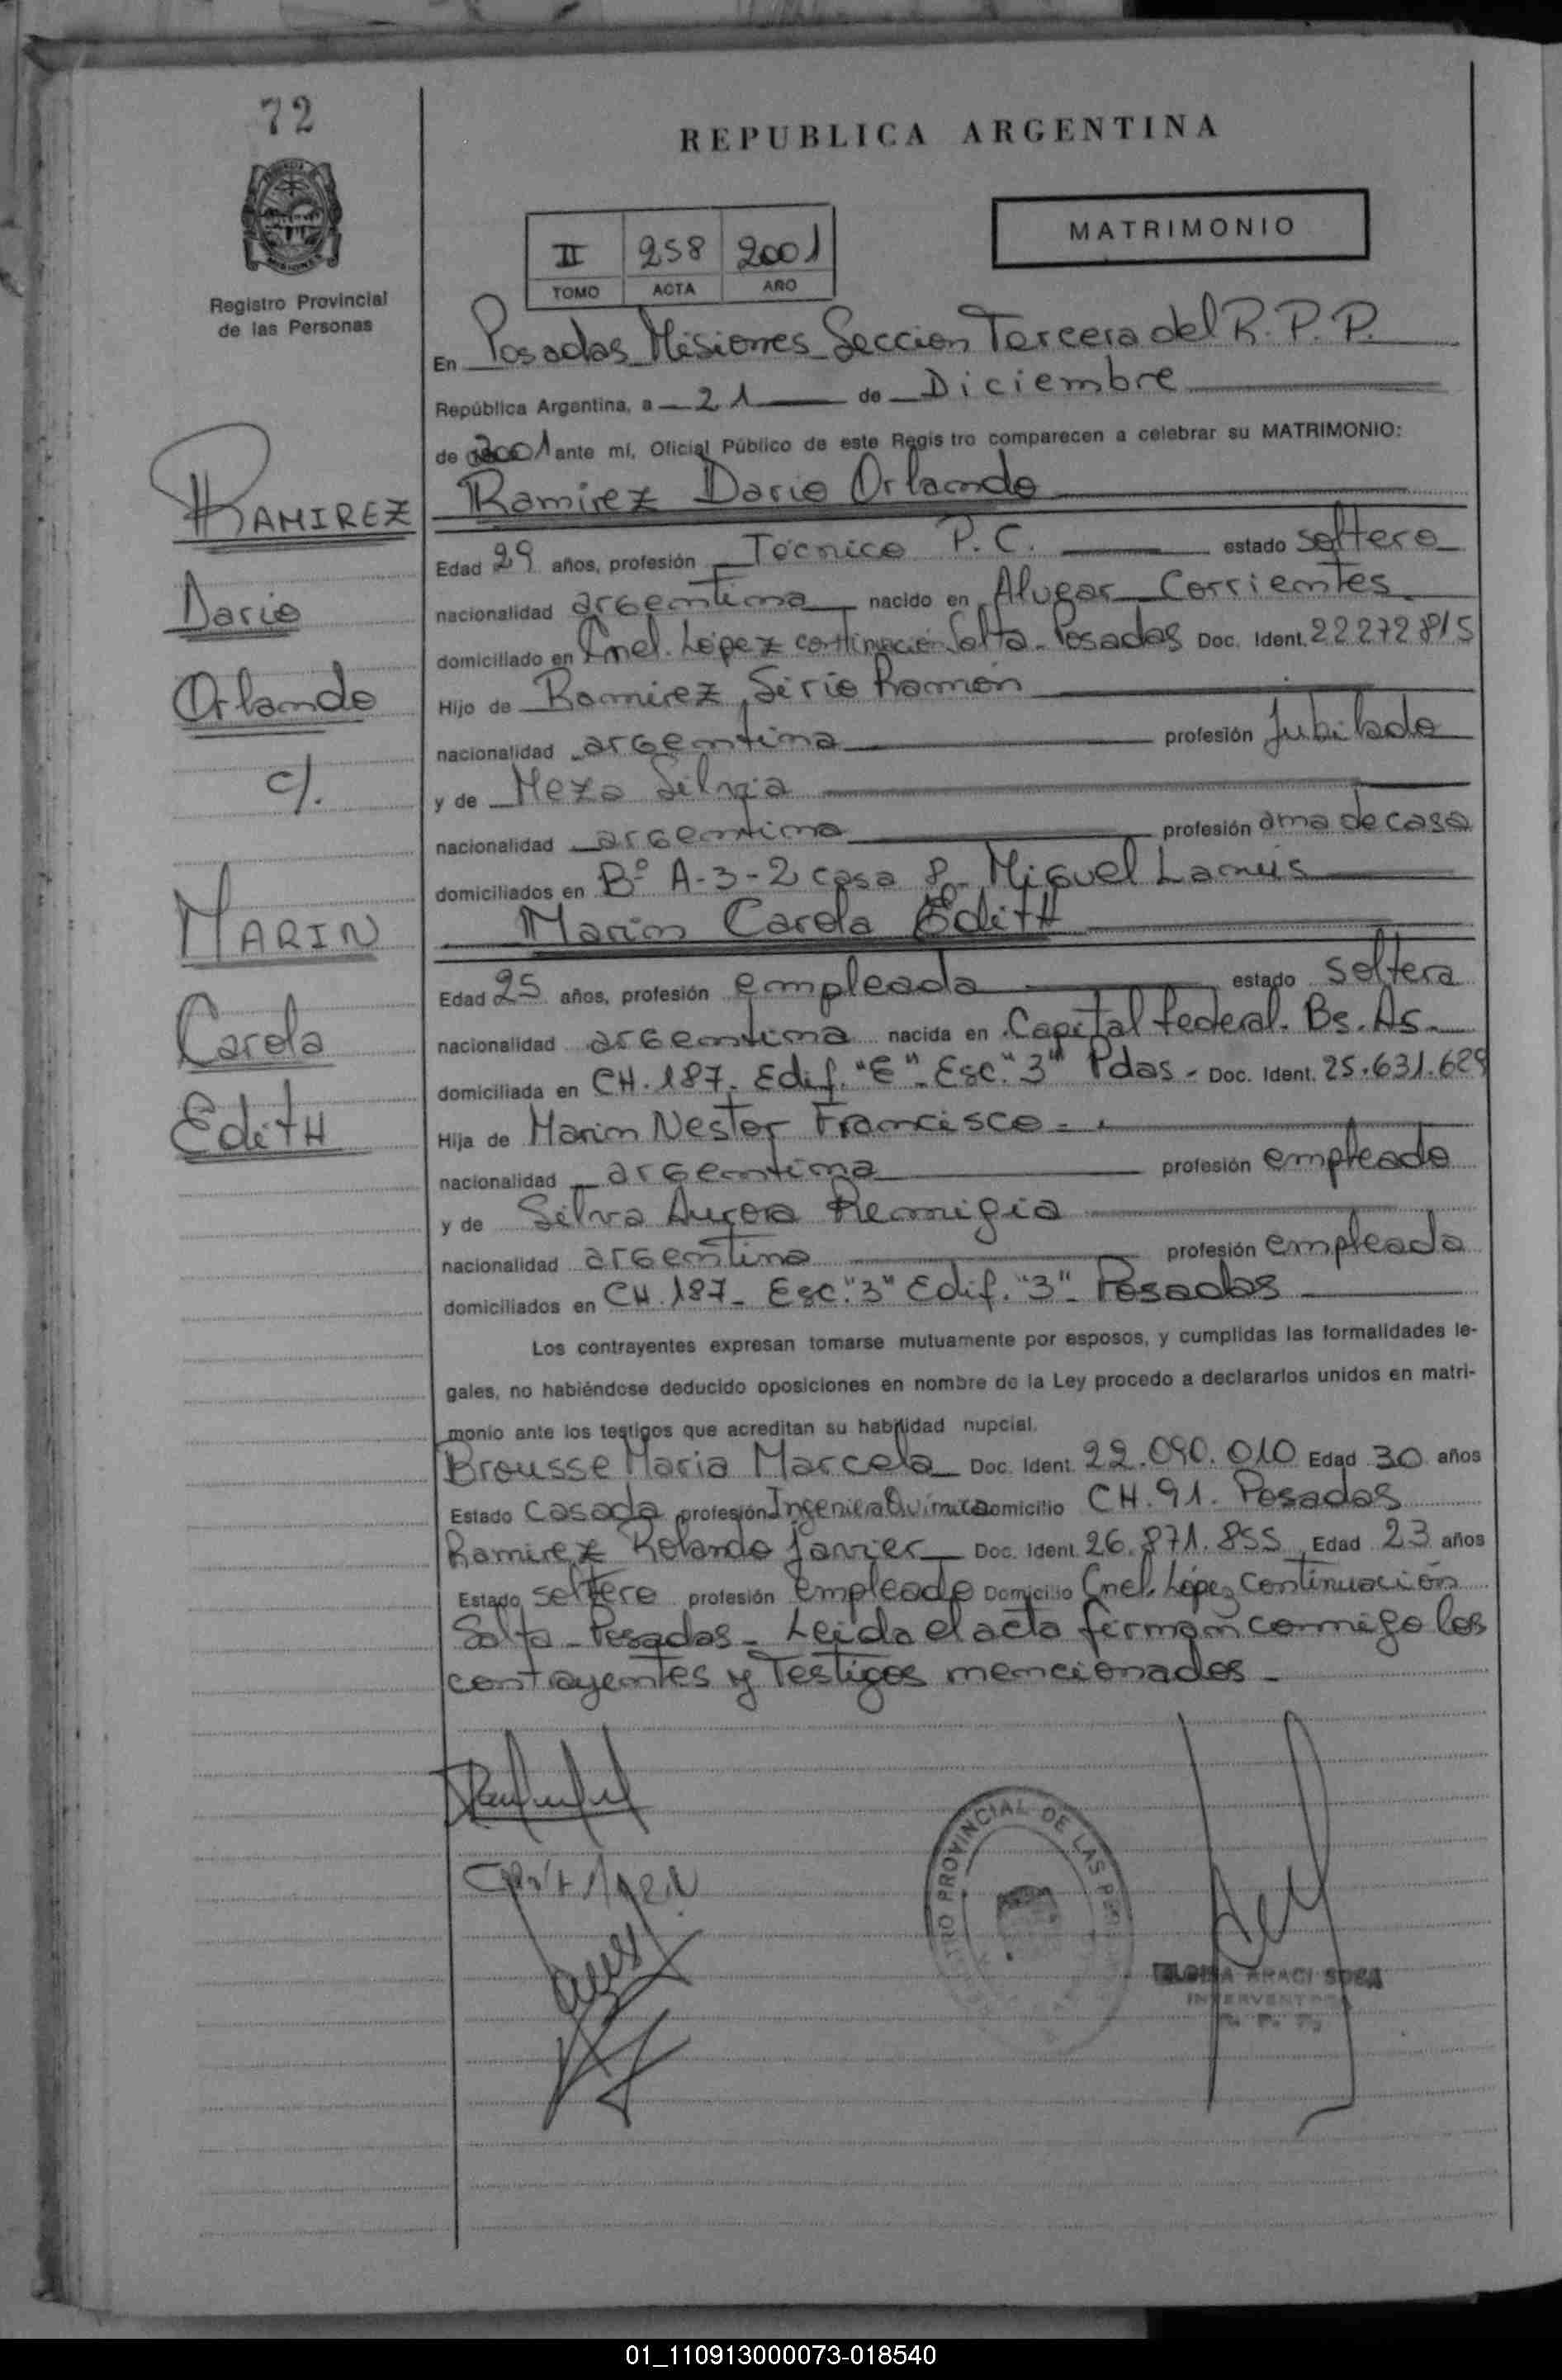 72
REPUBLICA ARGENTINA
MISIONES
Registro Provincial
de las Personas
II 258 2001
TOMO ACTA AÑO
MATRIMONIO
En Posadas Misiones Seccion Tercera del R.P.P.
República Argentina, a 21 de Diciembre
de 2001 ante mí, Oficial Público de este Regis tro comparecen a celebrar su MATRIMONIO:
RAMIREZ
Dario
Orlando
c/.
MARIN
Carola
EditH
Ramirez Dario Orlando
Edad 29 años, profesión Tecnico P.C. estado soltero
nacionalidad argentina nacido en Alvear Corrientes
domiciliado en Cnel. López continuación Salta - Posadas Doc. Ident. 22272815
Hijo de Ramirez, Sirio Ramón
nacionalidad argentina profesión Jubilado
y de Meza Silvia
nacionalidad argentina profesión ama de casa
domiciliados en Bº A-3-2 casa 8 - Miguel Lanus
Marin Carola EditH
Edad 25 años, profesión empleada estado soltera
nacionalidad argentina nacida en Capital Federal. Bs. As.
domiciliada en CH. 187. Edif. "E". Esc. "3" Pdas - Doc. Ident. 25.631.629
Hija de Marin Nestor Francisco -
nacionalidad argentina profesión empleado
y de Silva Aurora Remigia
nacionalidad argentina profesión empleada
domiciliados en CH. 187 - Esc. "3" Edif. "3" - Posadas
Los contrayentes expresan tomarse mutuamente por esposos, y cumplidas las formalidades le-
gales, no habiéndose deducido oposiciones en nombre de la Ley procedo a declararlos unidos en matri-
monio ante los testigos que acreditan su habilidad nupcial.
Brousse Maria Marcela Doc. Ident. 22.090.010 Edad 30 años
Estado Casada profesión Ingeniera Química Domicilio CH. 91. Posadas
Ramirez Rolando Javier Doc. Ident. 26.871.855 Edad 23 años
Estado soltero profesión empleado Domicilio Cnel. López Continuación
Salta - Posadas - Leida el acta firman conmigo los
contrayentes y Testigos mencionados -
PROVINCIAL DE LAS
ARACI SOSA
INTERVENTORA
R. P. P.
01_110913000073-018540